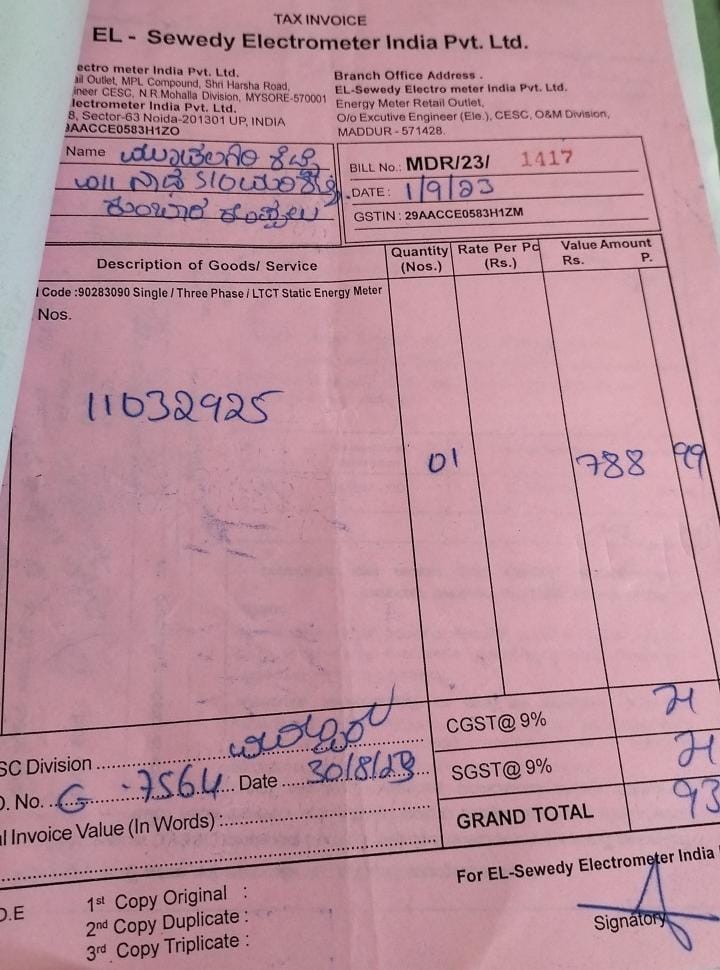 TAX INVOICE
EL - Sewedy Electrometer India Pvt. Ltd.
ectro meter India Pvt. Ltd.
ail Outlet, MPL Compound, Shri Harsha Road,
ineer CESC, N.R.Mohalla Division, MYSORE-570001
lectrometer India Pvt. Ltd.
8, Sector-63 Noida-201301 UP, INDIA
9AACCE0583H1ZO
Branch Office Address .
EL-Sewedy Electro meter India Pvt. Ltd.
Energy Meter Retail Outlet,
O/o Excutive Engineer (Ele.), CESC, O&M Division,
MADDUR - 571428.
Name
BILL No.: MDR/23/ 1417
DATE: 1/9/23
GSTIN : 29AACCE0583H1ZM
Description of Goods/ Service
Quantity (Nos.)
Rate Per Pc (Rs.)
Value Amount
Rs. P.
Code :90283090 Single / Three Phase / LTCT Static Energy Meter
Nos.
11032925
01
788 99
CGST@ 9% 71
SGST@ 9% 71
GRAND TOTAL 93
SC Division
O. No. G-7564 Date 30/8/23
l Invoice Value (In Words) :
For EL-Sewedy Electrometer India
O.E
1st Copy Original :
2nd Copy Duplicate :
3rd Copy Triplicate :
Signatory